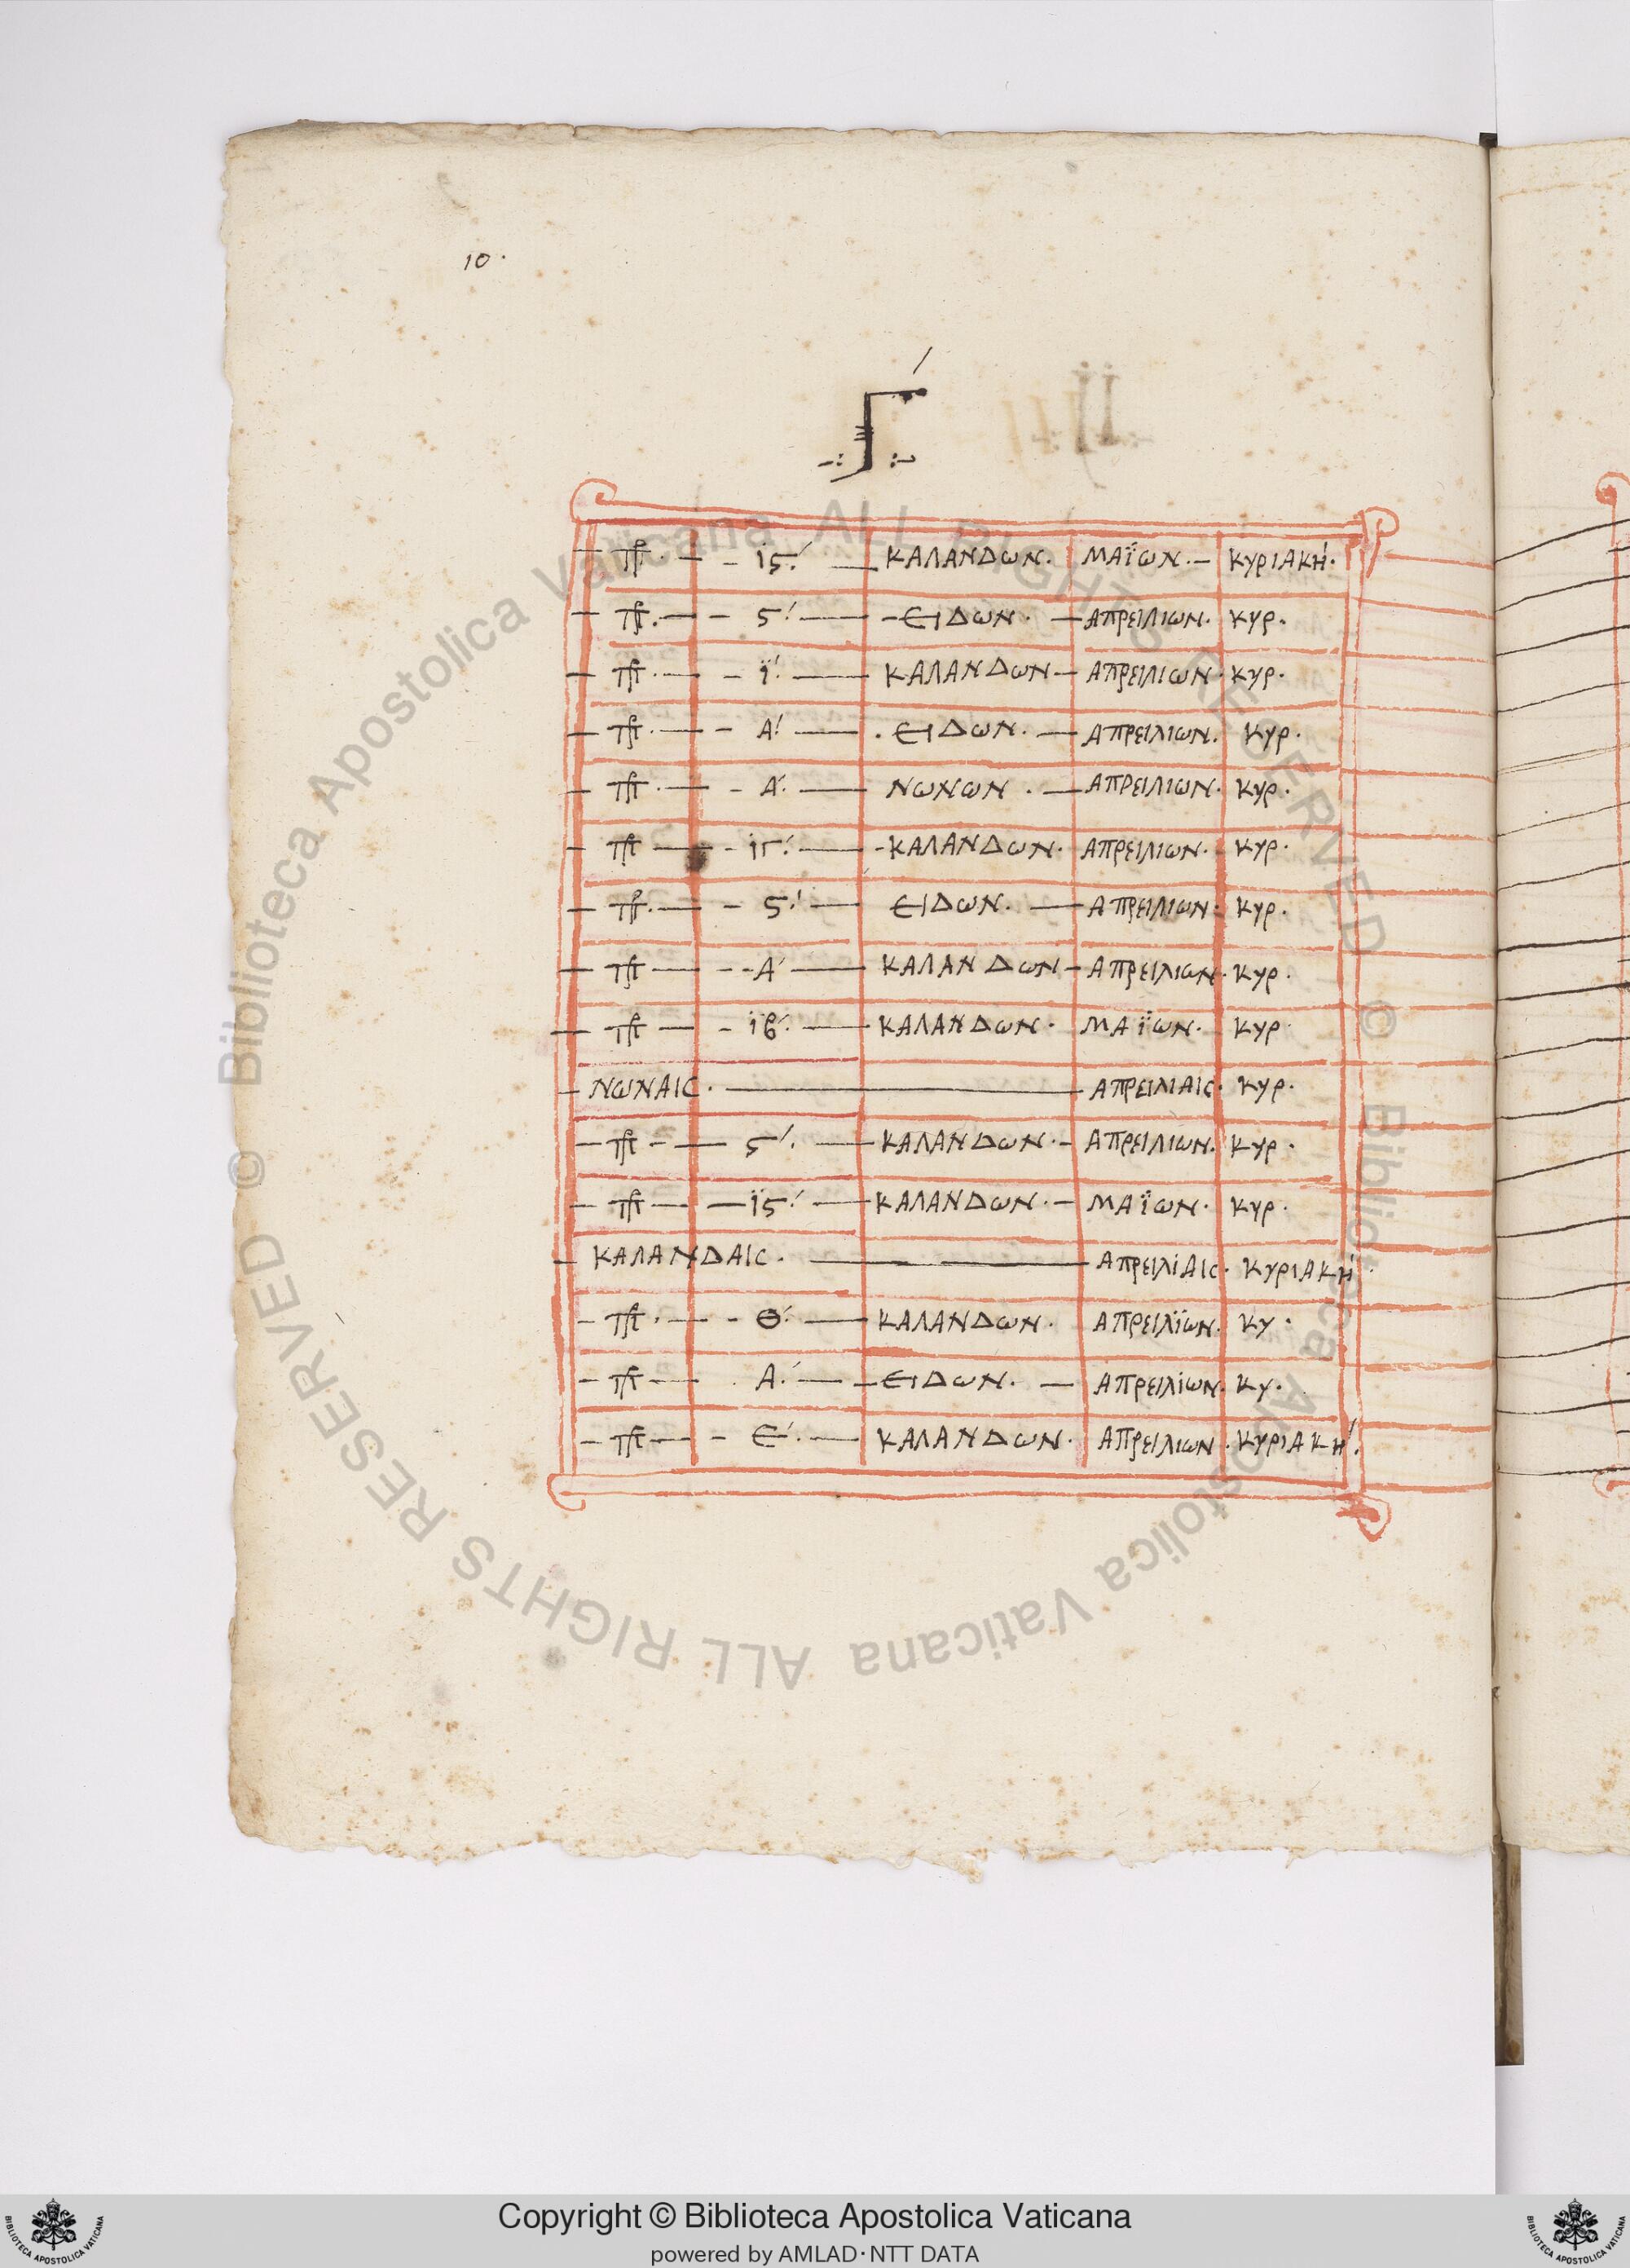 10.
Γ´
πρ. ιϛ´. ΚΑΛΑΝΔΩΝ. ΜΑΪΩΝ. ΚΥΡΙΑΚΗ´.
πρ. ϛ´. ΕΙΔΩΝ. ΑΠΡΕΙΛΙΩΝ. ΚΥΡ.
πρ. ϊ´. ΚΑΛΑΝΔΩΝ ΑΠΡΕΙΛΙΩΝ. ΚΥΡ.
πρ. Α´. ΕΙΔΩΝ. ΑΠΡΕΙΛΙΩΝ. ΚΥΡ.
πρ. Α´. ΝΩΝΩΝ. ΑΠΡΕΙΛΙΩΝ. ΚΥΡ.
πρ ιΓ´. ΚΑΛΑΝΔΩΝ. ΑΠΡΕΙΛΙΩΝ. ΚΥΡ.
πρ. ϛ´. ΕΙΔΩΝ. ΑΠΡΕΙΛΙΩΝ. ΚΥΡ.
πρ Α´ ΚΑΛΑΝΔΩΝ ΑΠΡΕΙΛΙΩΝ. ΚΥΡ.
πρ ϊβ´. ΚΑΛΑΝΔΩΝ. ΜΑΪΩΝ. ΚΥΡ.
ΝΩΝΑΙϹ. ΑΠΡΕΙΛΙΑΙϹ. ΚΥΡ.
πρ ϛ´. ΚΑΛΑΝΔΩΝ. ΑΠΡΕΙΛΙΩΝ. ΚΥΡ.
πρ ϊϛ´. ΚΑΛΑΝΔΩΝ. ΜΑΪΩΝ. ΚΥΡ.
ΚΑΛΑΝΔΑΙϹ. ΑΠΡΕΙΛΙΑΙϹ. ΚΥΡΙΑΚΗ´.
πρ. Θ´. ΚΑΛΑΝΔΩΝ. ΑΠΡΕΙΛΪΩΝ. ΚΥ.
πρ Α´. ΕΙΔΩΝ. ΑΠΡΕΙΛΙΩΝ. ΚΥ.
πρ Ε´. ΚΑΛΑΝΔΩΝ. ΑΠΡΕΙΛΙΩΝ. ΚΥΡΙΑΚΗ´.
© Biblioteca Apostolica Vaticana ALL RIGHTS RESERVED © Biblioteca Apostolica Vaticana ALL RIGHTS RESERVED
Copyright © Biblioteca Apostolica Vaticana
powered by AMLAD·NTT DATA